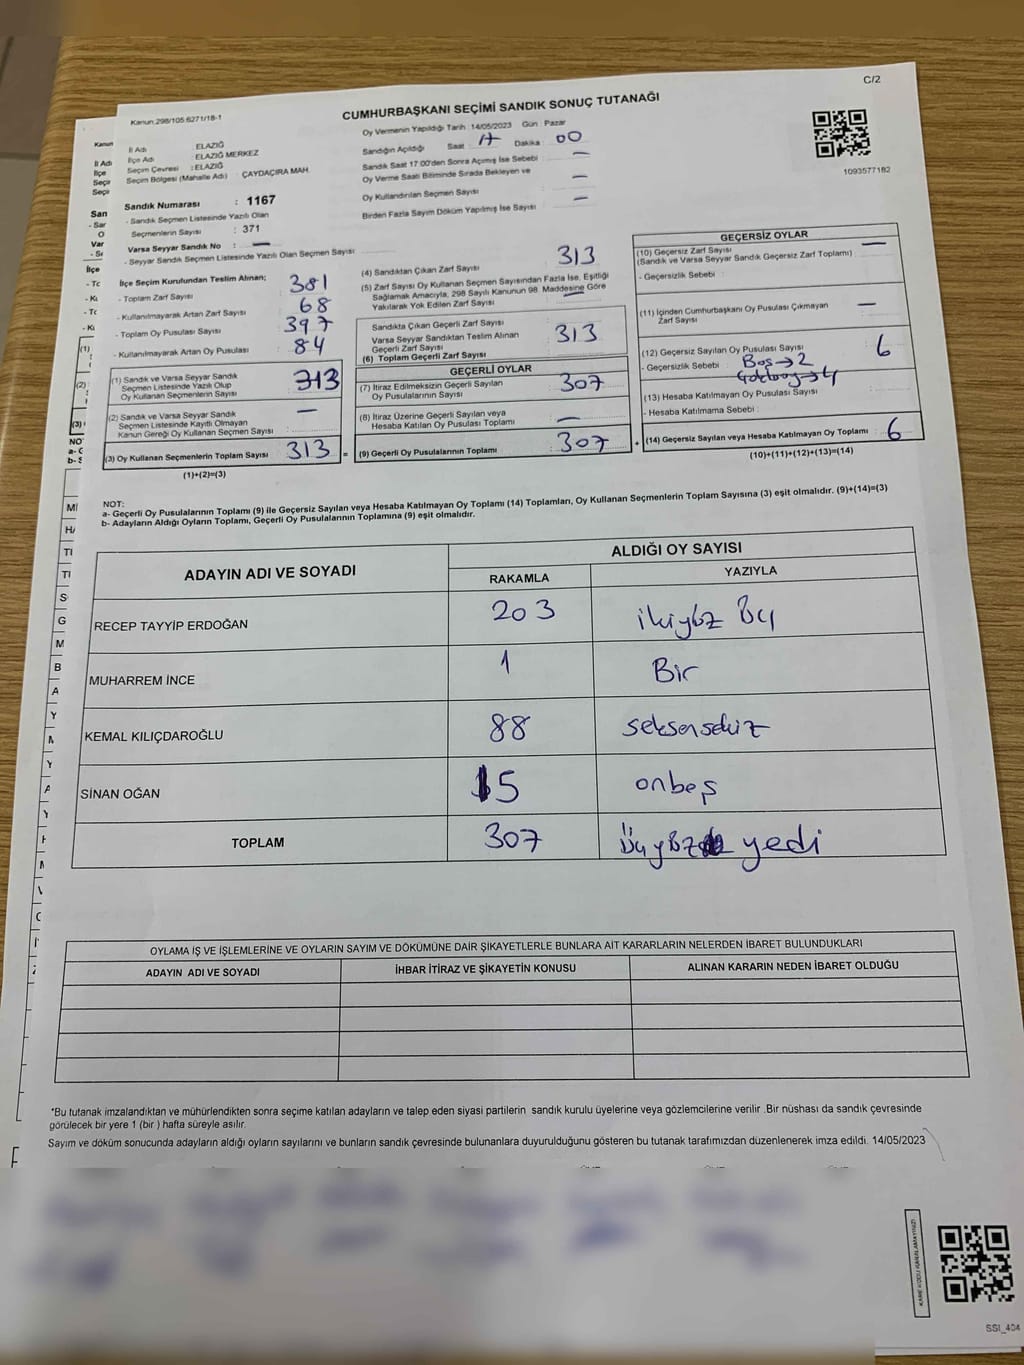 C/2
Kanun:298/105 6271/18-1
CUMHURBAŞKANI SEÇİMİ SANDIK SONUÇ TUTANAĞI
İl Adı : ELAZIĞ
İlçe Adı : ELAZIĞ MERKEZ
Seçim Çevresi : ELAZIĞ
Seçim Bölgesi (Mahalle Adı) ÇAYDAÇIRA MAH.
Oy Vermenin Yapıldığı Tarih :14/05/2023 Gün : Pazar
Sandığın Açıldığı Saat 17 Dakika 00
Sandık Saat 17:00'den Sonra Açımış İse Sebebi —
Oy Verme Saati Bitiminde Sırada Bekleyen ve
Oy Kullandırılan Seçmen Sayısı —
Birden Fazla Sayım Döküm Yapılmış İse Sayısı —
1093577182
Sandık Numarası : 1167
- Sandık Seçmen Listesinde Yazılı Olan
Seçmenlerin Sayısı : 371
Varsa Seyyar Sandık No : —
- Seyyar Sandık Seçmen Listesinde Yazılı Olan Seçmen Sayısı
İlçe Seçim Kurulundan Teslim Alınan;
- Toplam Zarf Sayısı 381
- Kullanılmayarak Artan Zarf Sayısı 68
- Toplam Oy Pusulası Sayısı 397
- Kullanılmayarak Artan Oy Pusulası 84
(1) Sandık ve Varsa Seyyar Sandık
Seçmen Listesinde Yazılı Olup
Oy Kullanan Seçmen Sayısı 313
(2) Sandık ve Varsa Seyyar Sandık
Seçmen Listesinde Kayıtlı Olmayan
Kanun Gereği Oy Kullanan Seçmen Sayısı : —
(3) Oy Kullanan Seçmenlerin Toplam Sayısı 313 =
(1)+(2)=(3)
(4) Sandıktan Çıkan Zarf Sayısı 313
(5) Zarf Sayısı Oy Kullanan Seçmen Sayısından Fazla İse, Eşitliği
Sağlamak Amacıyla, 298 Sayılı Kanunun 98. Maddesine Göre
Yakılarak Yok Edilen Zarf Sayısı —
Sandıkta Çıkan Geçerli Zarf Sayısı
Varsa Seyyar Sandıktan Teslim Alınan
Geçerli Zarf Sayısı
(6) Toplam Geçerli Zarf Sayısı 313
GEÇERLİ OYLAR
(7) İtiraz Edilmeksizin Geçerli Sayılan
Oy Pusulalarının Sayısı 307
(8) İtiraz Üzerine Geçerli Sayılan veya
Hesaba Katılan Oy Pusulası Toplamı —
(9) Geçerli Oy Pusulalarının Toplamı 307 +
GEÇERSİZ OYLAR
(10) Geçersiz Zarf Sayısı
(Sandık ve Varsa Seyyar Sandık Geçersiz Zarf Toplamı) : —
- Geçersizlik Sebebi :
(11) İçinden Cumhurbaşkanı Oy Pusulası Çıkmayan
Zarf Sayısı —
(12) Geçersiz Sayılan Oy Pusulası Sayısı 6
- Geçersizlik Sebebi : Boş→2
(13) Hesaba Katılmayan Oy Pusulası Sayısı
- Hesaba Katılmama Sebebi :
(14) Geçersiz Sayılan veya Hesaba Katılmayan Oy Toplamı : 6
(10)+(11)+(12)+(13)=(14)
NOT:
a- Geçerli Oy Pusulalarının Toplamı (9) ile Geçersiz Sayılan veya Hesaba Katılmayan Oy Toplamı (14) Toplamları, Oy Kullanan Seçmenlerin Toplam Sayısına (3) eşit olmalıdır. (9)+(14)=(3)
b- Adayların Aldığı Oyların Toplamı, Geçerli Oy Pusulalarının Toplamına (9) eşit olmalıdır.
ADAYIN ADI VE SOYADI
ALDIĞI OY SAYISI
RAKAMLA YAZIYLA
RECEP TAYYİP ERDOĞAN 203 ikiyüz üç
MUHARREM İNCE 1 Bir
KEMAL KILIÇDAROĞLU 88 seksensekiz
SİNAN OĞAN 15 onbeş
TOPLAM 307 üçyüz yedi
OYLAMA İŞ VE İŞLEMLERİNE VE OYLARIN SAYIM VE DÖKÜMÜNE DAİR ŞİKAYETLERLE BUNLARA AİT KARARLARIN NELERDEN İBARET BULUNDUKLARI
ADAYIN ADI VE SOYADI İHBAR İTİRAZ VE ŞİKAYETİN KONUSU ALINAN KARARIN NEDEN İBARET OLDUĞU
*Bu tutanak imzalandıktan ve mühürlendikten sonra seçime katılan adayların ve talep eden siyasi partilerin sandık kurulu üyelerine veya gözlemcilerine verilir .Bir nüshası da sandık çevresinde
görülecek bir yere 1 (bir ) hafta süreyle asılır.
Sayım ve döküm sonucunda adayların aldığı oyların sayılarını ve bunların sandık çevresinde bulunanlara duyurulduğunu gösteren bu tutanak tarafımızdan düzenlenerek imza edildi. 14/05/2023
SSI_404